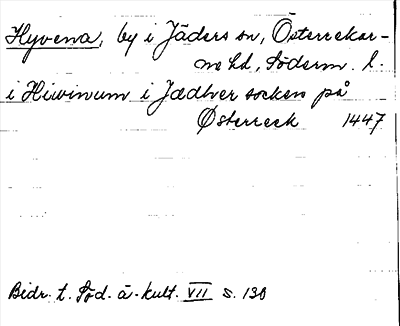 Hyvena, by i Jäders sn, Österrekar-
ne hd, Söderm. l.
i Hiwinum i Jædhver socken på
Østerreck 1447
Bidr. t. Söd. ä. kult. VII s. 130